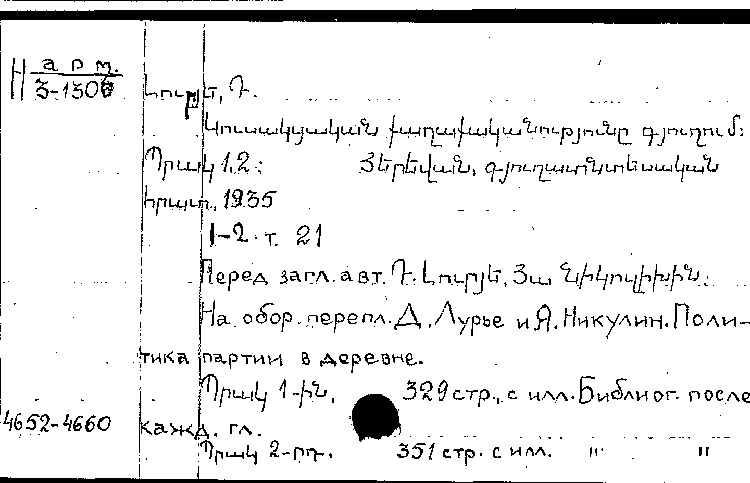 Н арм. 3-1306
Լուրյե, Դ.
Կուսակցական քաղաքականությունը գյուղում:
Պրակ 1,2: Յերեվան, գյուղատնտեսական
հրատ., 1935
1-2 т. 21
Перед загл. авт. Դ. Լուրյե, Յա Նիկուլիխին.
На обор. перепл. Д. Лурье и Я. Никулин. Поли-
тика партии в деревне.
Պրակ 1-ին, 329 стр., с илл. Библиог. после
4652-4660 кажд. гл.
Պրակ 2-րդ. 351 стр. с илл. " "